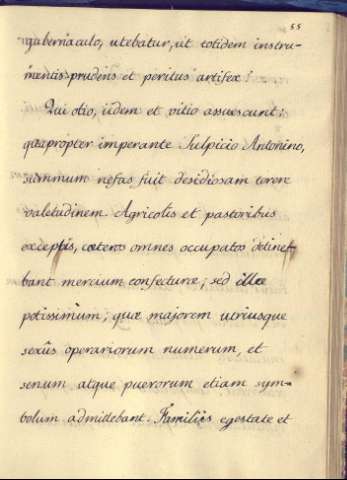 55
gubernaculo, utebatur, ut totidem instru-
mentis prudens et peritus artifex!
Qui otio, iidem et vitio assuescunt;
quapropter imperante Sulpicio Antonino,
summum nefas fuit desidiosam terere
valetudinem. Agricolis et pastoribus
exceptis, cœteros omnes occupatos detine-
bant mercium confecturæ; sed illæ
potissimùm; quæ majorem utriusque
sexûs operariorum numerum, et
senum atque puerorum etiam sym-
bolum admittebant. Familiis egestate et